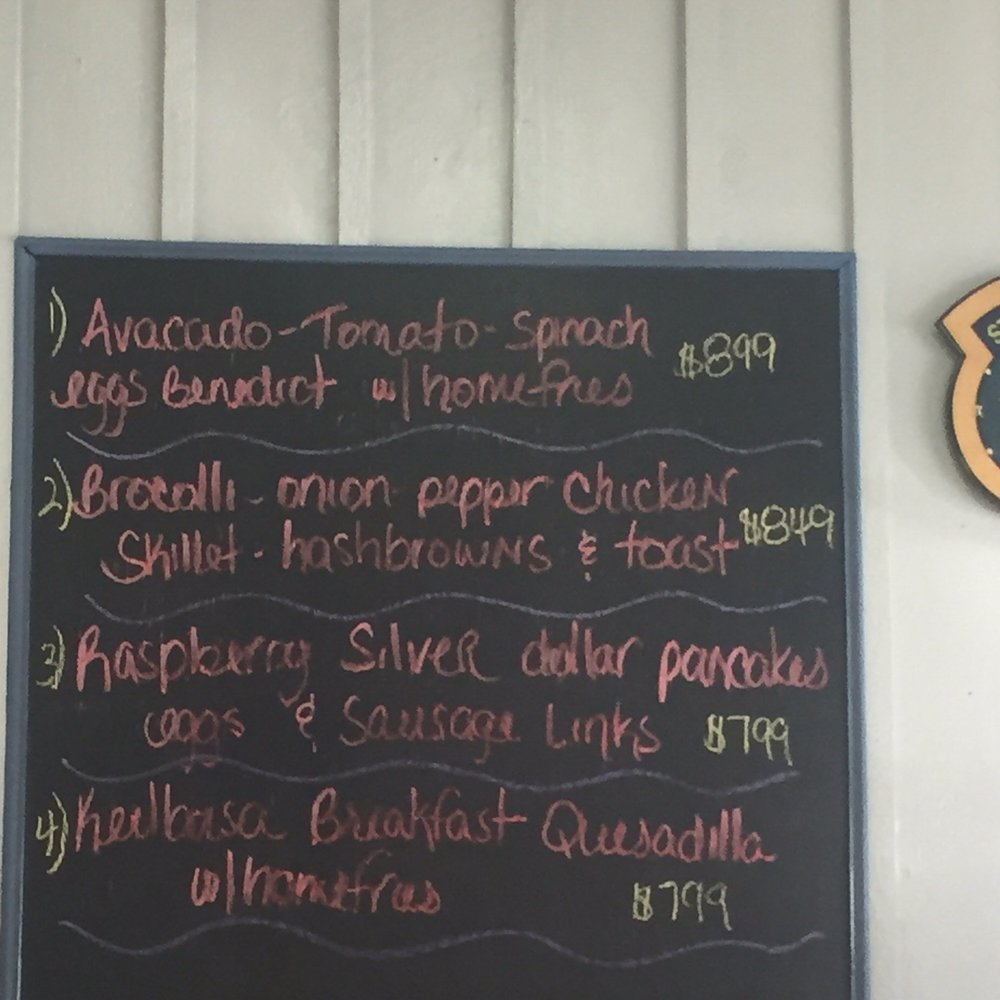 1) Avacado-Tomato-Spinach
eggs Benedict w/homefries $899
2) Brocolli-onion pepper Chicken
Skillet-hashbrowns & toast $849
3) Raspberry Silver dollar pancakes
eggs & Sausage Links $799
4) Keilbasa Breakfast Quesadilla
w/homefries $799